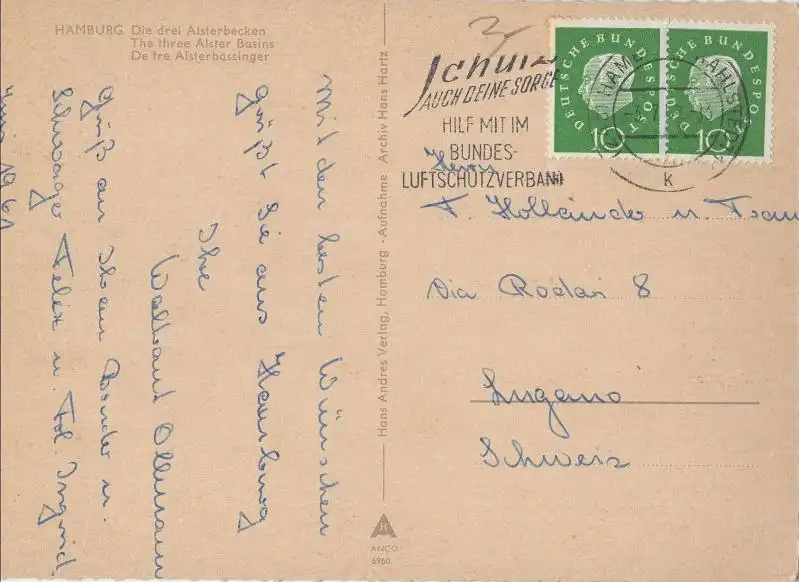 HAMBURG Die drei Alsterbecken
The three Alster Basins
De tre Alsterbassinger
Mit den besten Wünschen
grüßt Sie aus Hamburg
Ihre
Waltraut Ollmann
Gruß an Ihren Bruder u.
Schwager Felix u. Frl. Ingrid
Juni 1961
Hans Andres Verlag, Hamburg - Aufnahme Archiv Hans Hartz
ANCO
6960
Schutz
AUCH DEINE SORGE
HILF MIT IM
BUNDES-
LUFTSCHUTZVERBAND
DEUTSCHE BUNDESPOST
10
DEUTSCHE BUNDESPOST
10
HAMB RAHLSTEDT
K
Herrn
F. Holländer u. Frau
Via Rodari 8
Lugano
Schweiz